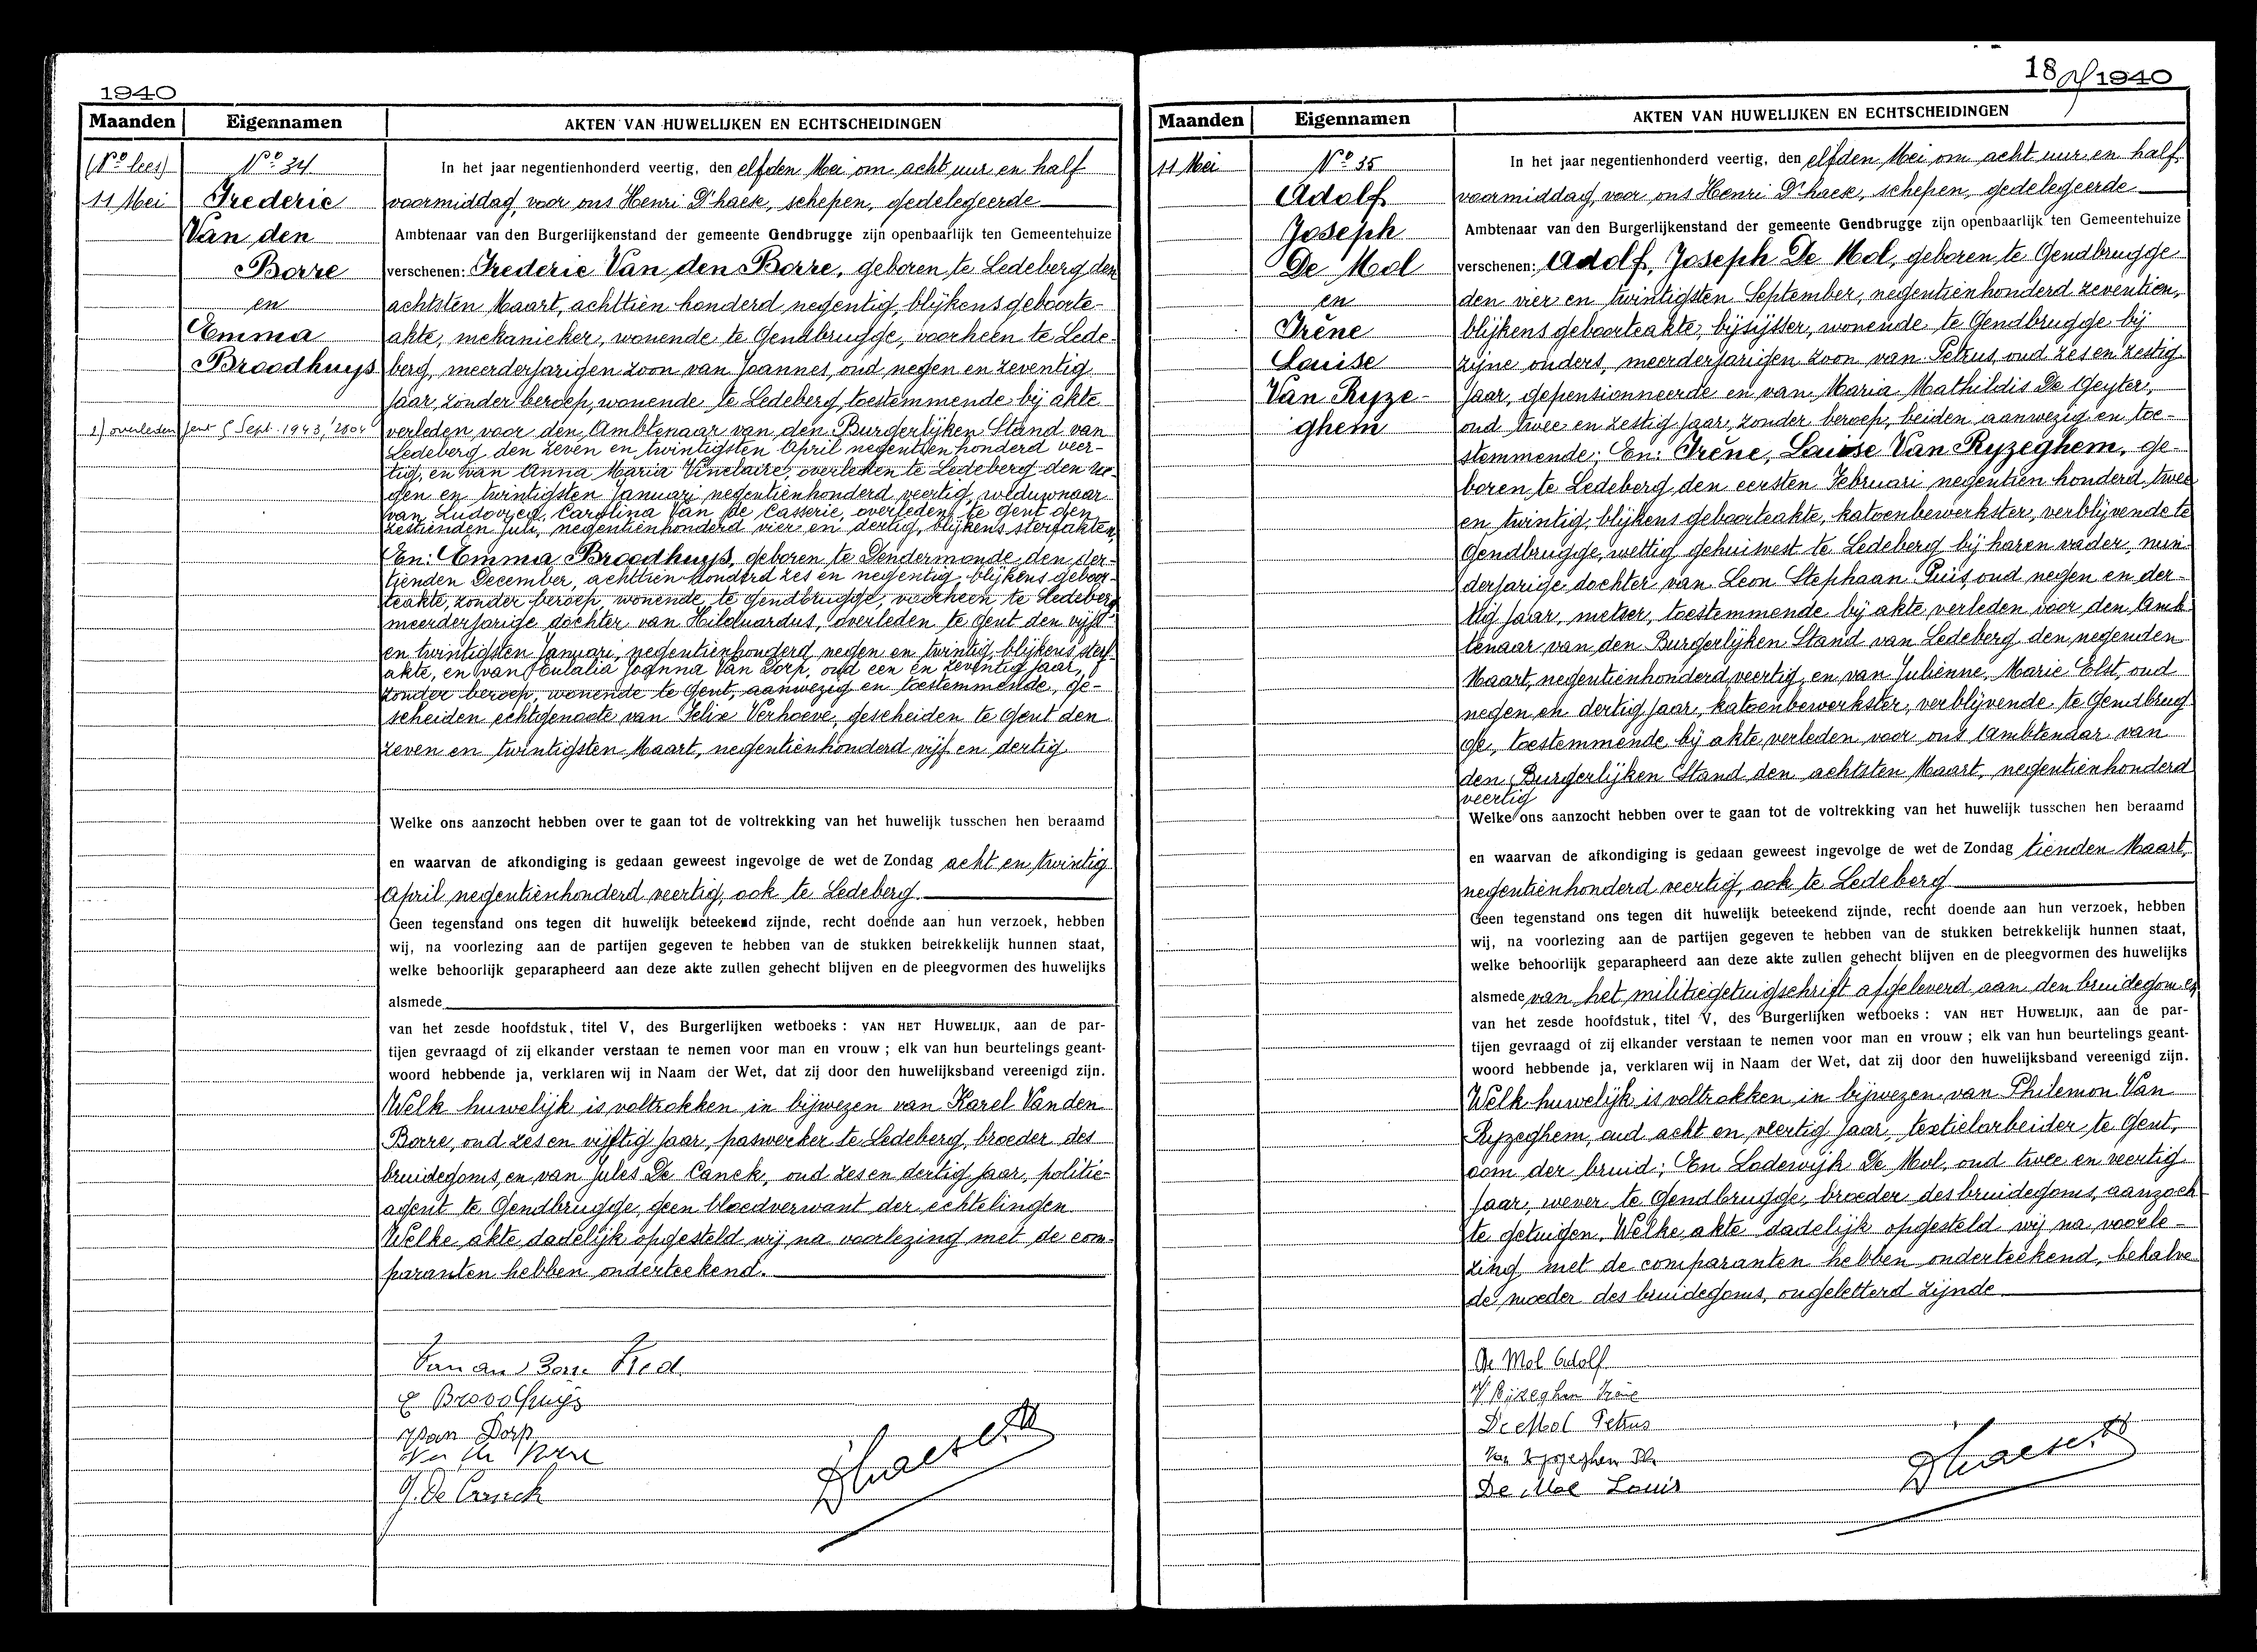 1940
Maanden Eigennamen AKTEN VAN HUWELIJKEN EN ECHTSCHEIDINGEN
(No lees) No 34 In het jaar negentienhonderd veertig, den elfden Mei om acht uur en half
11 Mei Frederic voormiddag, voor ons Henri D'haese, schepen, gedelegeerde
Van den Ambtenaar van den Burgerlijkenstand der gemeente Gendbrugge zijn openbaarlijk ten Gemeentehuize
Borre verschenen: Frederic Van den Borre, geboren te Ledeberg den
en achtsten Maart, achttien honderd negentig, blijkens geboorte-
Emma akte, mekanieker, wonende te Gendbrugge, voorheen te Lede-
Broodhuys berg, meerderjarigen zoon van Joannes, oud negen en zeventig
jaar, zonder beroep, wonende te Ledeberg, toestemmende bij akte
1) overleden Gent 5 Sept. 1943, 2804 verleden voor den Ambtenaar van den Burgerlijken Stand van
Ledeberg den zeven en twintigsten April negentienhonderd veer-
tig, en van Anna Maria Vinclaire, overleden te Ledeberg den ne-
gen en twintigsten Januari negentienhonderd veertig, weduwnaar
van Ludovica, Carolina Van de Casserie, overleden te Gent den
zestienden Juli, negentienhonderd vier en dertig, blijkens sterfakten,
En: Emma Broodhuys, geboren te Dendermonde den der-
tienden December, achttienhonderd zes en negentig, blijkens geboor-
teakte, zonder beroep, wonende te Gendbrugge, voorheen te Ledeberg
meerderjarige dochter van Hilduardus, overleden te Gent den vijf
en twintigsten Januari, negentienhonderd negen en twintig, blijkens sterf-
akte, en van Eulalia Joanna Van Dorp, oud een en zeventig jaar,
zonder beroep, wonende te Gent, aanwezig en toestemmende, ge-
scheiden echtgenoote van Felix Verhoeve, gescheiden te Gent den
zeven en twintigsten Maart, negentienhonderd vijf en dertig
Welke ons aanzocht hebben over te gaan tot de voltrekking van het huwelijk tusschen hen beraamd
en waarvan de afkondiging is gedaan geweest ingevolge de wet de Zondag acht en twintig
April negentienhonderd veertig, ook te Ledeberg
Geen tegenstand ons tegen dit huwelijk beteekend zijnde, recht doende aan hun verzoek, hebben
wij, na voorlezing aan de partijen gegeven te hebben van de stukken betrekkelijk hunnen staat,
welke behoorlijk geparapheerd aan deze akte zullen gehecht blijven en de pleegvormen des huwelijks
alsmede
van het zesde hoofdstuk, titel V, des Burgerlijken wetboeks : VAN HET HUWELIJK, aan de par-
tijen gevraagd of zij elkander verstaan te nemen voor man en vrouw ; elk van hun beurtelings geant-
woord hebbende ja, verklaren wij in Naam der Wet, dat zij door den huwelijksband vereenigd zijn.
Welk huwelijk is voltrokken in bijwezen van Karel Vanden
Borre, oud zes en vijftig jaar, paswerker te Ledeberg, broeder des
bruidegoms, en van Jules De Canck, oud zes en dertig jaar, politie-
agent te Gendbrugge, geen bloedverwant der echtelingen
Welke akte dadelijk opgesteld wij na voorlezing met de com-
paranten hebben onderteekend.
Van den Borre Fred.
E Broodhuys
Van Dorp
Van den Borre
J. De Canck
Dhaese H
18 1940
Maanden Eigennamen AKTEN VAN HUWELIJKEN EN ECHTSCHEIDINGEN
11 Mei No 35 In het jaar negentienhonderd veertig, den elfden Mei om acht uur en half
Adolf voormiddag, voor ons Henri D'haese, schepen, gedelegeerde
Joseph Ambtenaar van den Burgerlijkenstand der gemeente Gendbrugge zijn openbaarlijk ten Gemeentehuize
De Mol verschenen: Adolf, Joseph De Mol, geboren te Gendbrugge
en den vier en twintigsten September, negentienhonderd zeventien,
Irène blijkens geboorteakte, bijsijtser, wonende te Gendbrugge bij
Louise zijne ouders, meerderjarigen zoon van Petrus, oud zes en zestig
Van Ryze- jaar, gepensionneerde en van Maria Mathildis De Geyter,
ghem oud twee en zestig jaar, zonder beroep, beiden aanwezig en toe-
stemmende; En: Irène, Louise Van Ryzeghem, ge-
boren te Ledeberg den eersten Februari negentien honderd twee
en twintig, blijkens geboorteakte, katoenbewerkster, verblijvende te
Gendbrugge, wettig gehuisvest te Ledeberg bij haren vader, min-
derjarige dochter van Leon Stephaan Puis, oud negen en der-
tig jaar, metser, toestemmende bij akte verleden voor den Amb-
tenaar van den Burgerlijken Stand van Ledeberg den negenden
Maart, negentienhonderd veertig, en van Julienne, Marie Elst, oud
negen en dertig jaar, katoenbewerkster, verblijvende te Gendbrug
ge, toestemmende bij akte verleden voor ons Ambtenaar van
den Burgerlijken Stand den achtsten Maart, negentienhonderd
veertig
Welke ons aanzocht hebben over te gaan tot de voltrekking van het huwelijk tusschen hen beraamd
en waarvan de afkondiging is gedaan geweest ingevolge de wet de Zondag tienden Maart,
negentienhonderd veertig, ook te Ledeberg
Geen tegenstand ons tegen dit huwelijk beteekend zijnde, recht doende aan hun verzoek, hebben
wij, na voorlezing aan de partijen gegeven te hebben van de stukken betrekkelijk hunnen staat,
welke behoorlijk geparapheerd aan deze akte zullen gehecht blijven en de pleegvormen des huwelijks
alsmede van het militiegetuigschrift afgeleverd aan den bruidegom en
van het zesde hoofdstuk, titel V, des Burgerlijken wetboeks : VAN HET HUWELIJK, aan de par-
tijen gevraagd of zij elkander verstaan te nemen voor man en vrouw ; elk van hun beurtelings geant-
woord hebbende ja, verklaren wij in Naam der Wet, dat zij door den huwelijksband vereenigd zijn.
Welk huwelijk is voltrokken in bijwezen van Philemon Van
Ryzeghem, oud acht en veertig jaar, textielarbeider te Gent,
oom der bruid; En Lodewijk De Mol, oud twee en veertig
jaar, wever te Gendbrugge, broeder des bruidegoms, aanzoch
te getuigen. Welke akte dadelijk opgesteld wij na voorle-
zing met de comparanten hebben onderteekend, behalve
de moeder des bruidegoms, ongeletterd zijnde
De Mol Adolf
V Ryzeghem Irène
De Mol Petrus
Van Ryzeghem Ph
De Mol Louis
Dhaese H